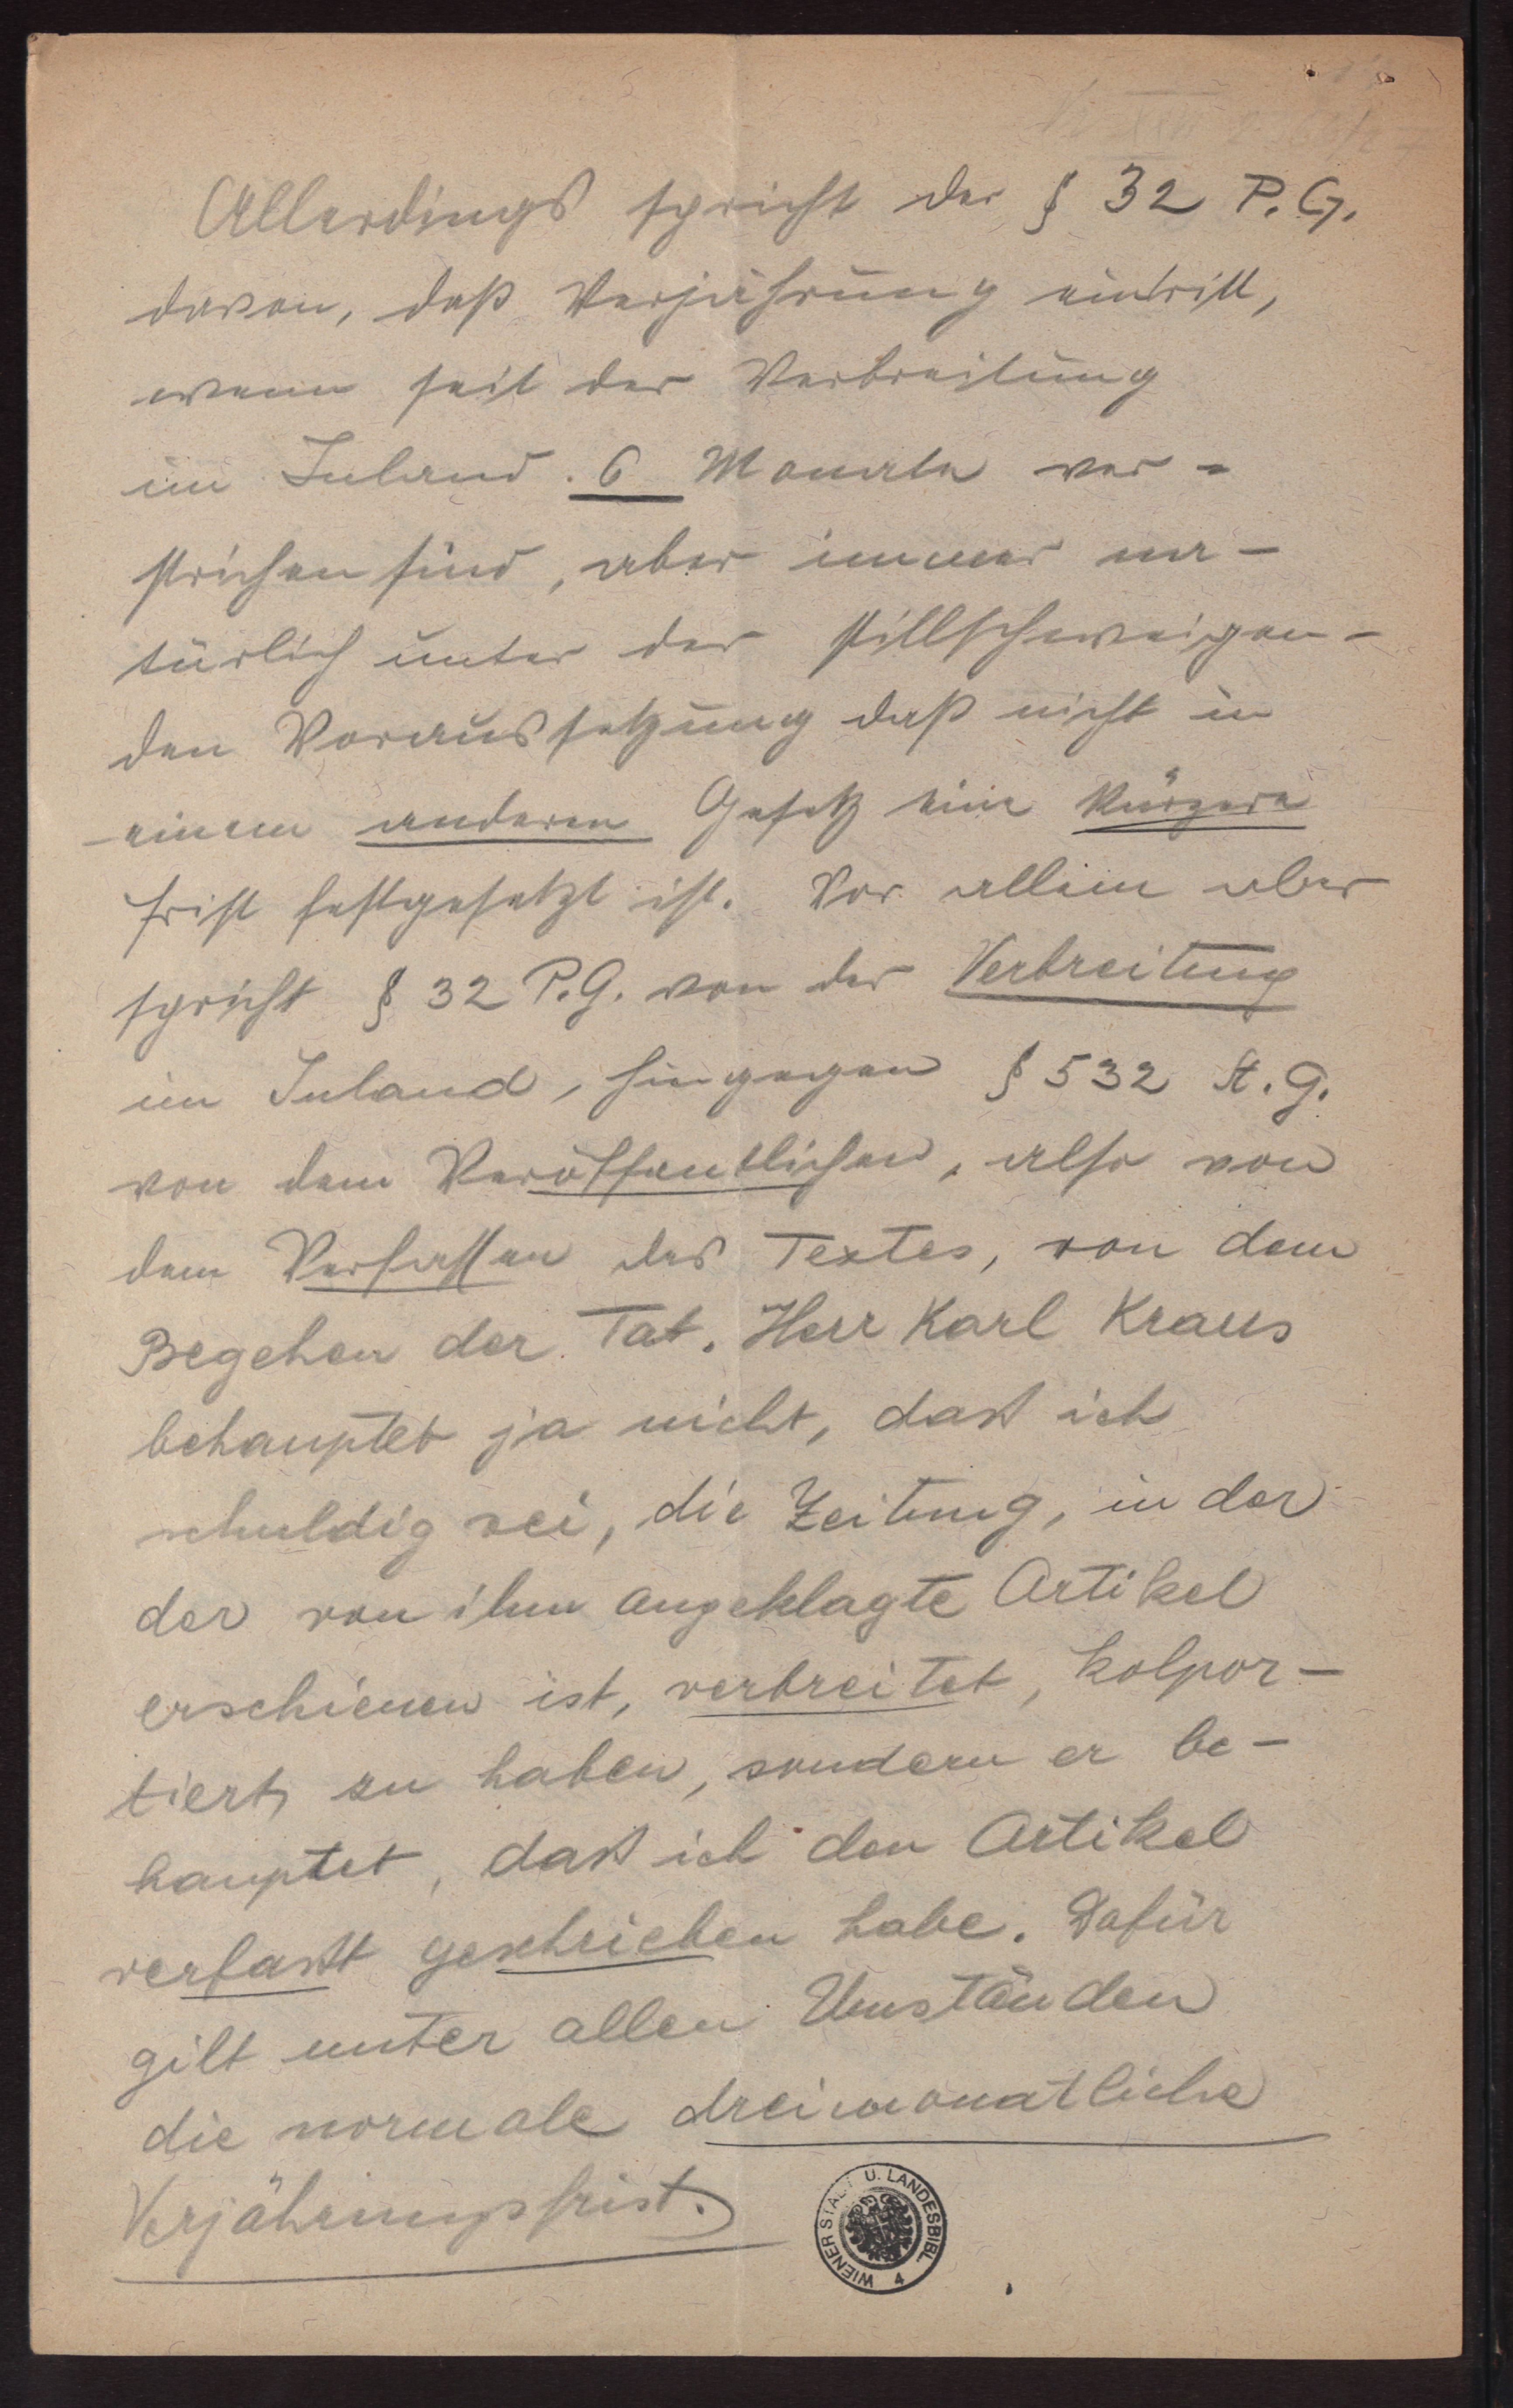 Allerdings spricht der § 32 P.G.
davon, daß Verjährung eintritt,
wenn seit der Verbreitung
im Inland 6 Monate ver-
strichen sind, aber immer na-
türlich unter der stillschweigen-
den Voraussetzung daß nicht in
einem anderen Gesetz eine kürzere
Frist festgesetzt ist. Vor allem aber
spricht § 32 P.G. von der Verbreitung
im Inland, hingegen § 532 St.G.
von dem Veröffentlichen, also von
dem Verfassen des Textes, von dem
Begehen der Tat. Herr Karl Kraus
behauptet ja nicht, daß ich
schuldig sei, die Zeitung, in der
der von ihm angeklagte Artikel
erschienen ist, verbreitet, kolpor-
tiert zu haben, sondern er be-
hauptet, daß ich den Artikel
verfaßt geschrieben habe. Dafür
gilt unter allen Umständen
die normale dreimonatliche
Verjährungsfrist.
WIENER STADT U. LANDESBIBL. 4